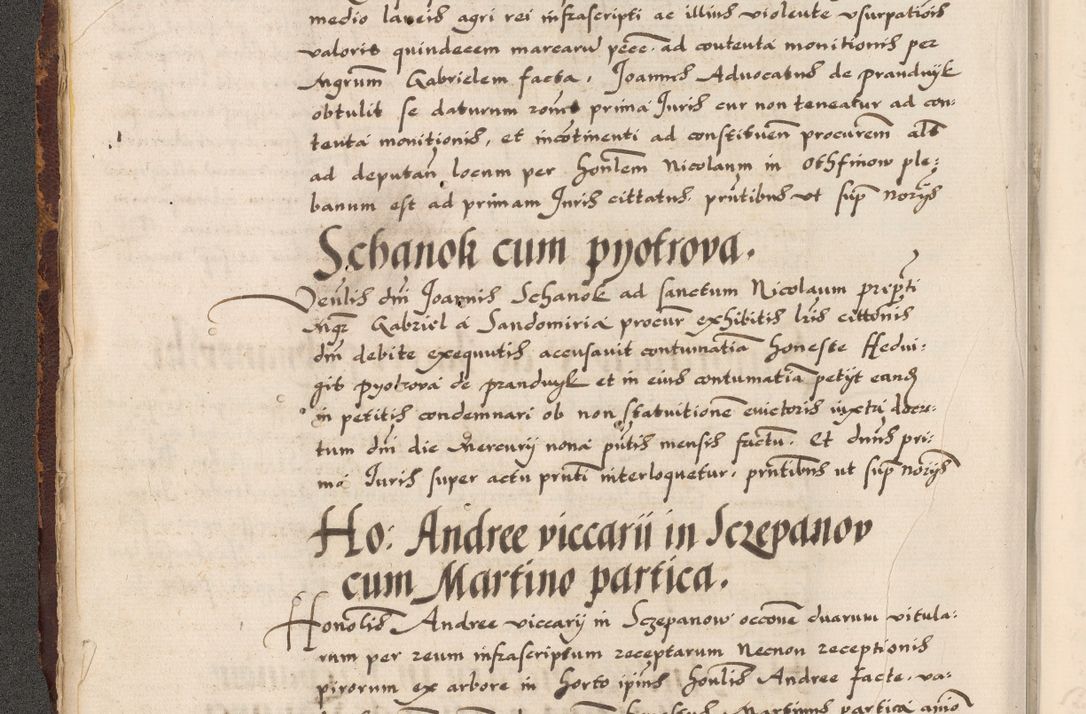 medio laneis agri rei infrascripti ac illius violente usurpationis
valoris quindecem marcarum pecc. ad contenta monitionis per
Mgrum Gabrielem facta. Joannes Advocatus de prandnyk
obtulit se daturum prima Juris cur non teneatur ad con:
tenta monitionis, et incontinenti ad constituen procurem alt
ad deputan locum per honlem Nicolaum in Othfinow ple:
banum est ad primam Juris cittatus. pntibus ut sup noryis
Schanok cum pyotrova.
Venlis dni Joannis Schanok ad sanctum Nicolaum prepti
Mgr Gabriel a Sandomiria procur exhibitis lris cittonis
dni debite exequutis accusavit contumatia honeste Hedvi:
gis pyotrova de prandnyk et in eius contumatia petyt eand
in petitis condemnari ob non statuitione evictoris iuxta decre:
tum dni die Mercurij nona pntis mensis factu. Et dnus pri:
ma Juris super actu pnti interloquetur. pntibus ut sup noryis
Ho: Andree viccarii in Sczepanov
cum Martino partica.
Honolis Andree viccarij in Sczepanow occone duarum vitula:
rum per reum infrascriptum receptarum Necnon receptionis
pirorum ex arbore in horto ipius honlis Andree facte. va:
Martinus partica